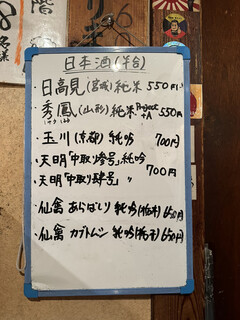 日本酒(半合)
・日高見(宮城)純米 550円
・秀鳳(山形)純米 Project +A 550円
・玉川(京都)純吟 700円
・天明「中取り参号」純吟
・天明「中取り肆号」〃 700円
・仙禽 あらばしり 純吟(栃木)650円
・仙禽 カブトムシ 純吟(栃木)650円